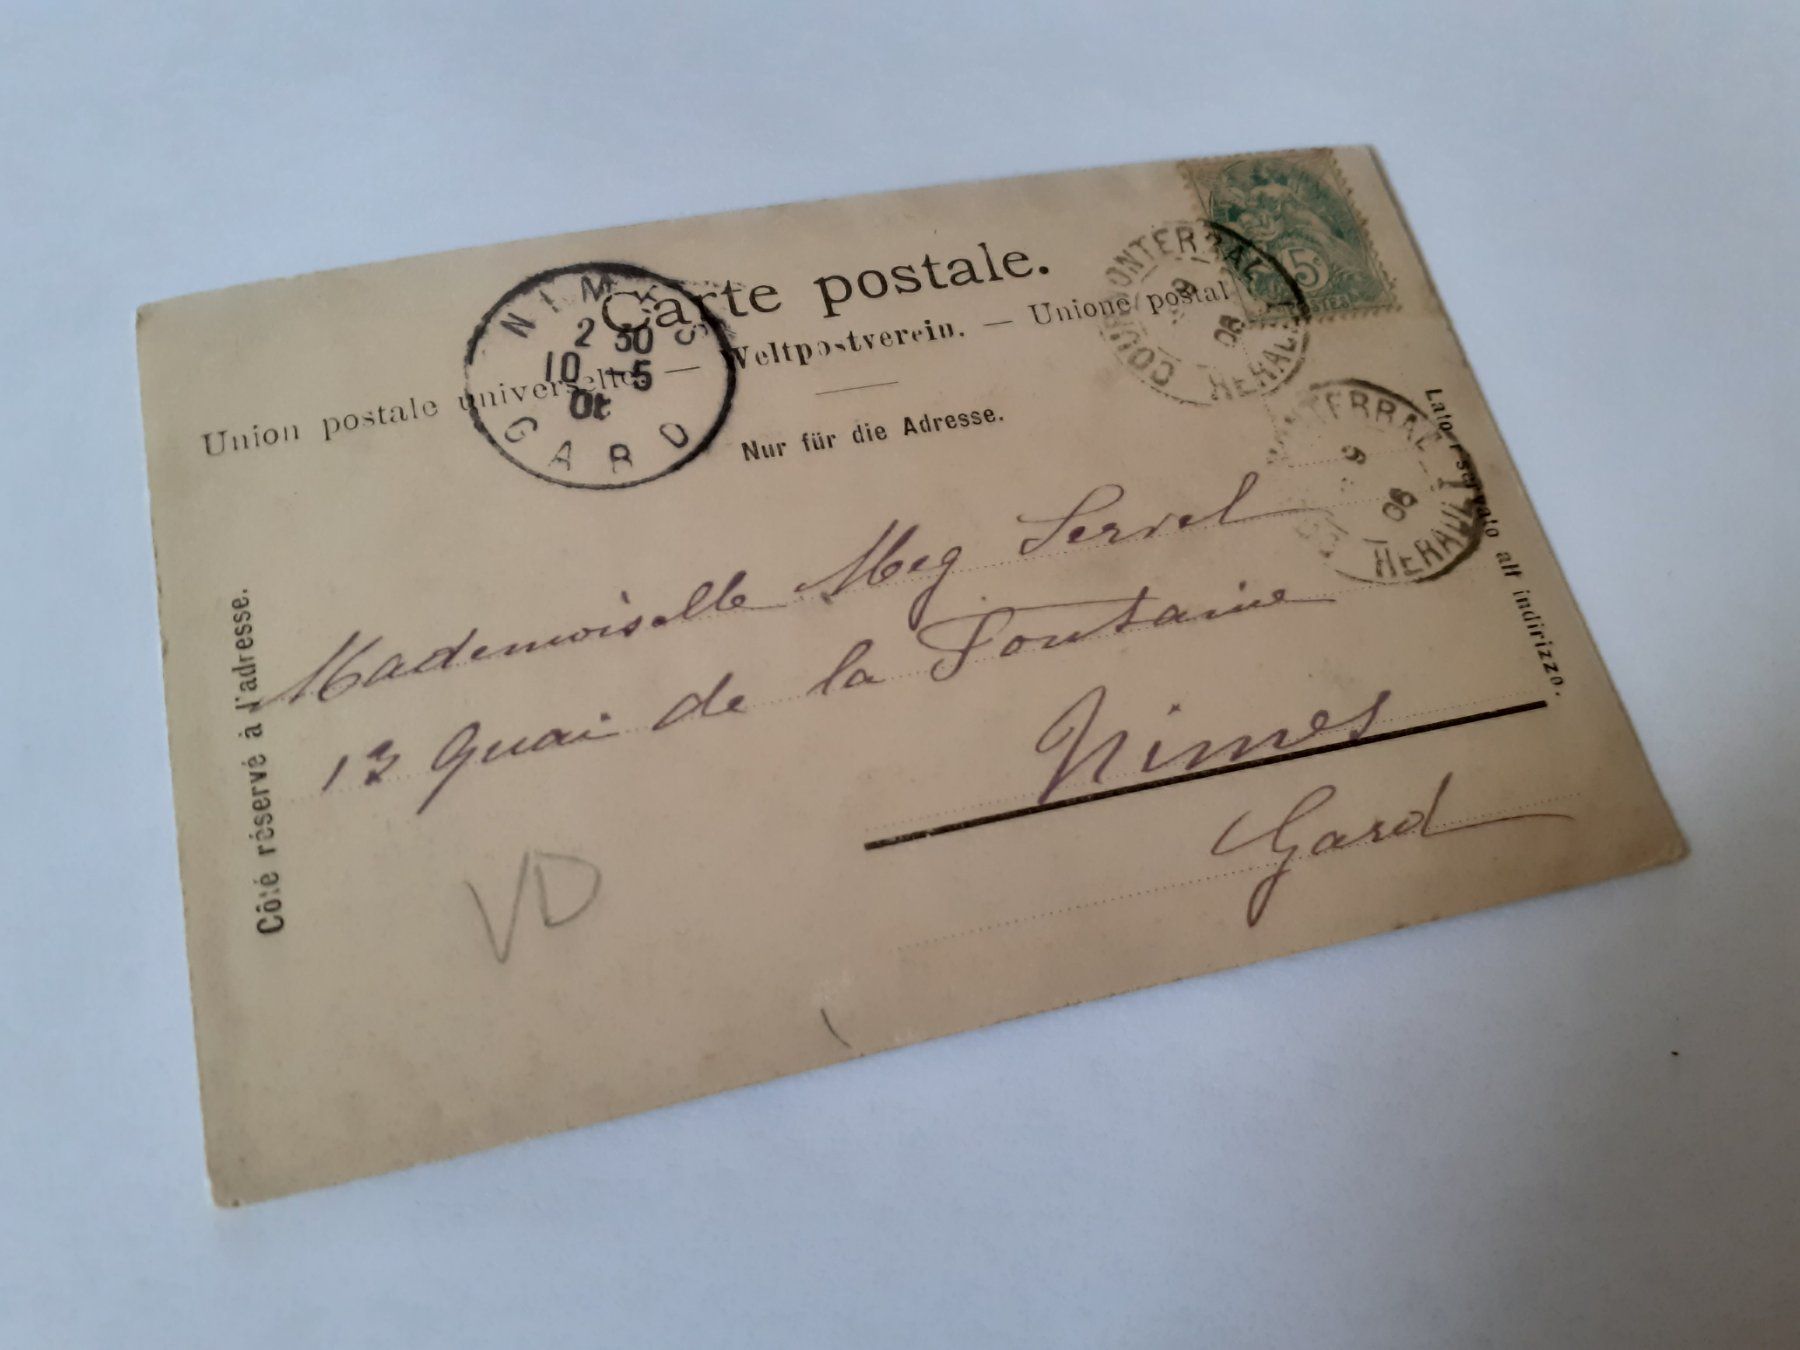 Carte postale.
Union postale universelle. — Weltpostverein. — Unione postal
Nur für die Adresse.
Côté réservé à l'adresse.
Lato riservato all' indirizzo.
NIMES
2 30
10 -5
GARD
COURNONTERRAL
9
06
HERAULT
5
POSTES
TERRAL
9
06
HERAULT
Mademoiselle Meg Servel
13 Quai de la Fontaine
Nimes
Gard
VD